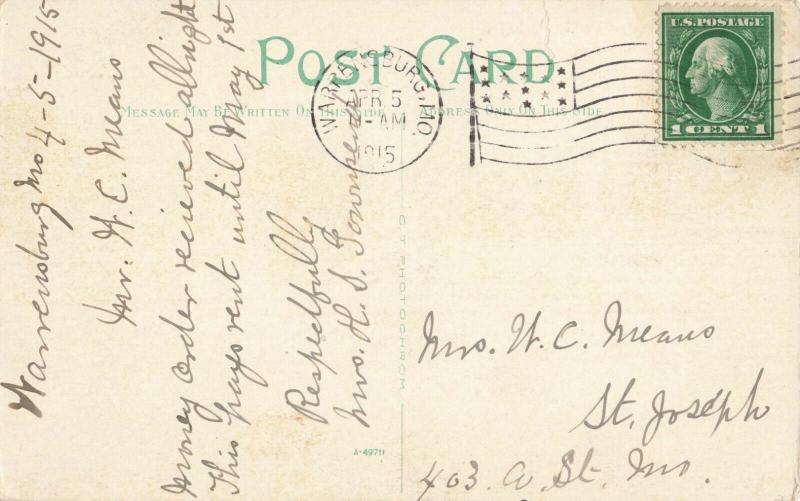 POST CARD
MESSAGE MAY BE WRITTEN ON THIS SIDE
ADDRESS ONLY ON THIS SIDE
WARRENSBURG, MO.
APR 5
-AM
1915
U.S. POSTAGE
1 CENT 1
Warrensburg Mo 4-5-1915
Mr. W. C. Means
Money order recieved allright
This pays rent until May 1st
Respectfully
Mrs. H. S. Townsend
C T PHOTOCHROM
A-49711
Mrs. W. C. Means
St. Joseph
403. St. Mo.